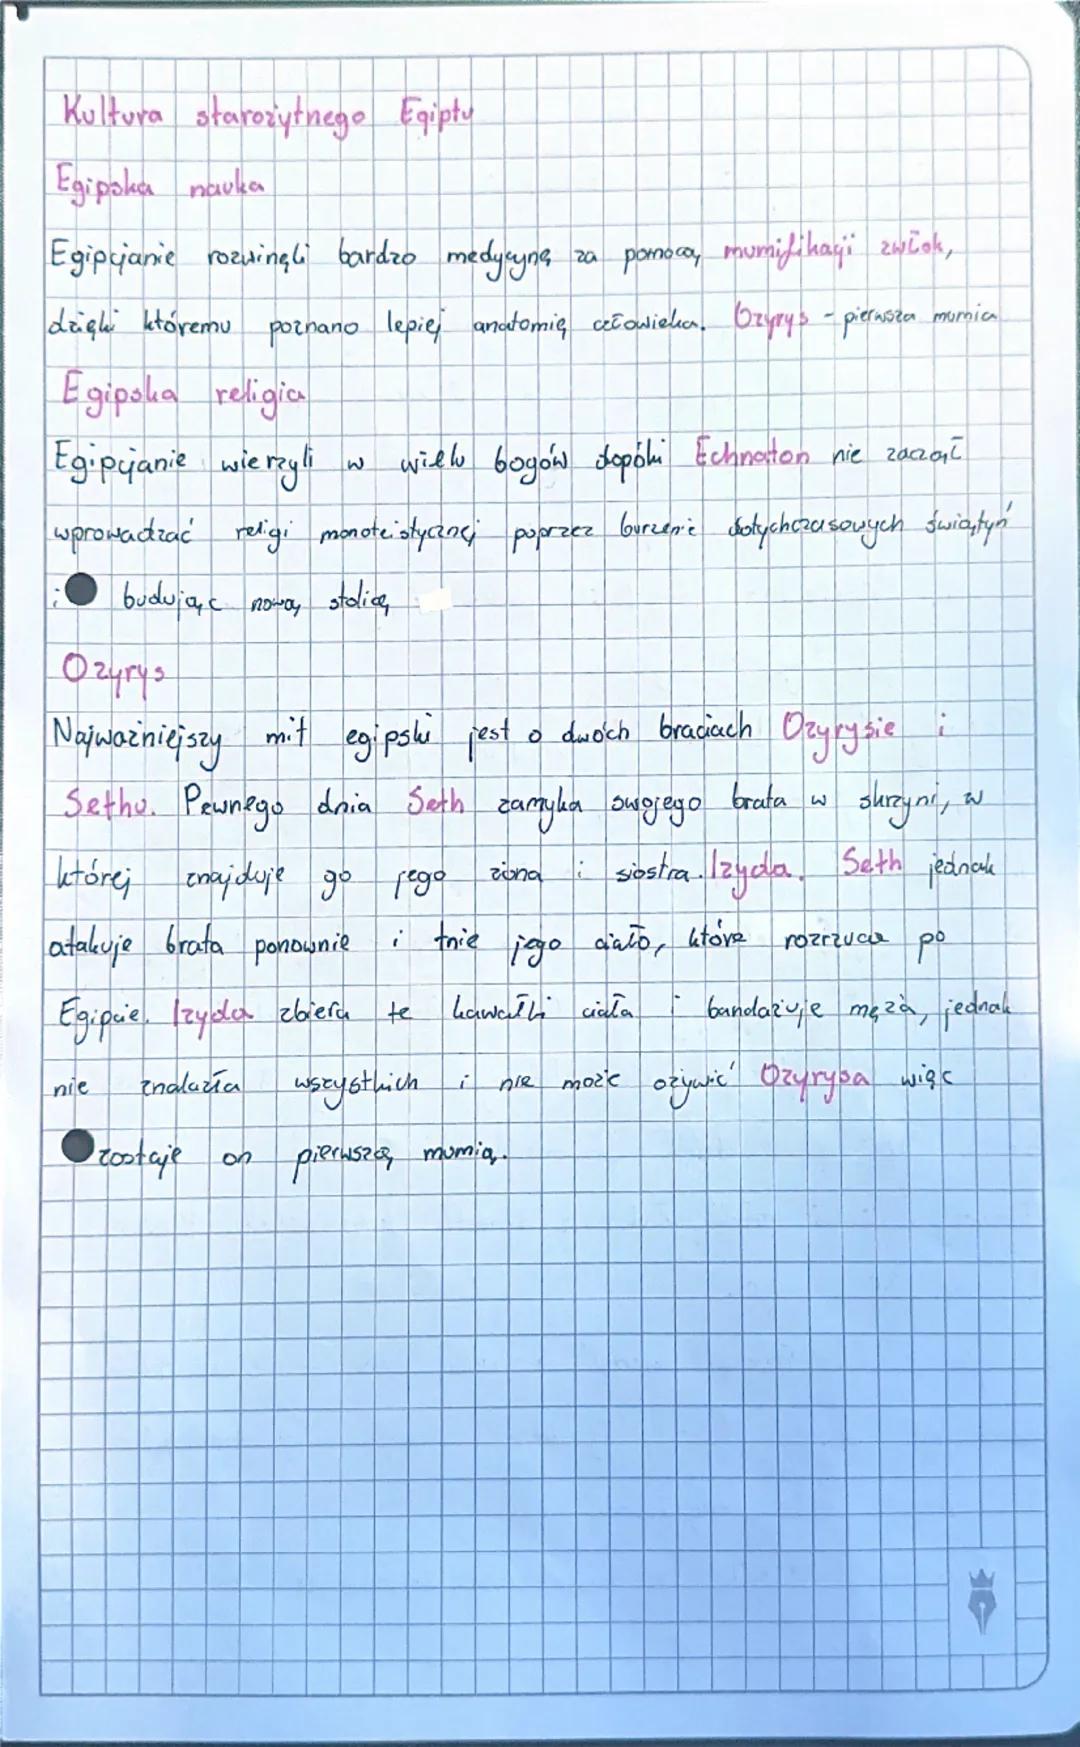 Kultura starożytnego Egiptu
Egipska nauka
Egipcjanie rozwinęli bardzo medycynę za pomocą mumifikacji zwłok,
dzięki któremu poznano lepiej anatomię człowieka. Ozyrys - pierwsza mumia
Egipska religia
Egipcjanie wierzyli w wielu bogów dopóki Echnaton nie zaczął
wprowadzać religi monoteistycznej poprzez burzenie dotychczasowych świątyń
i budując nową stolicę
Ozyrys
Najważniejszy mit egipski jest o dwóch braciach Ozyrysie i
Sethu. Pewnego dnia Seth zamyka swojego brata w skrzyni, w
której znajduje go jego żona i siostra Izyda. Seth jednak
atakuje brata ponownie i tnie jego ciało, które rozrzuca po
Egipcie. Izyda zbiera te kawałki ciała i bandażuje męża, jednak
nie znalazła wszystkich i nie może ożywić Ozyrysa więc
zostaje on pierwszą mumią.